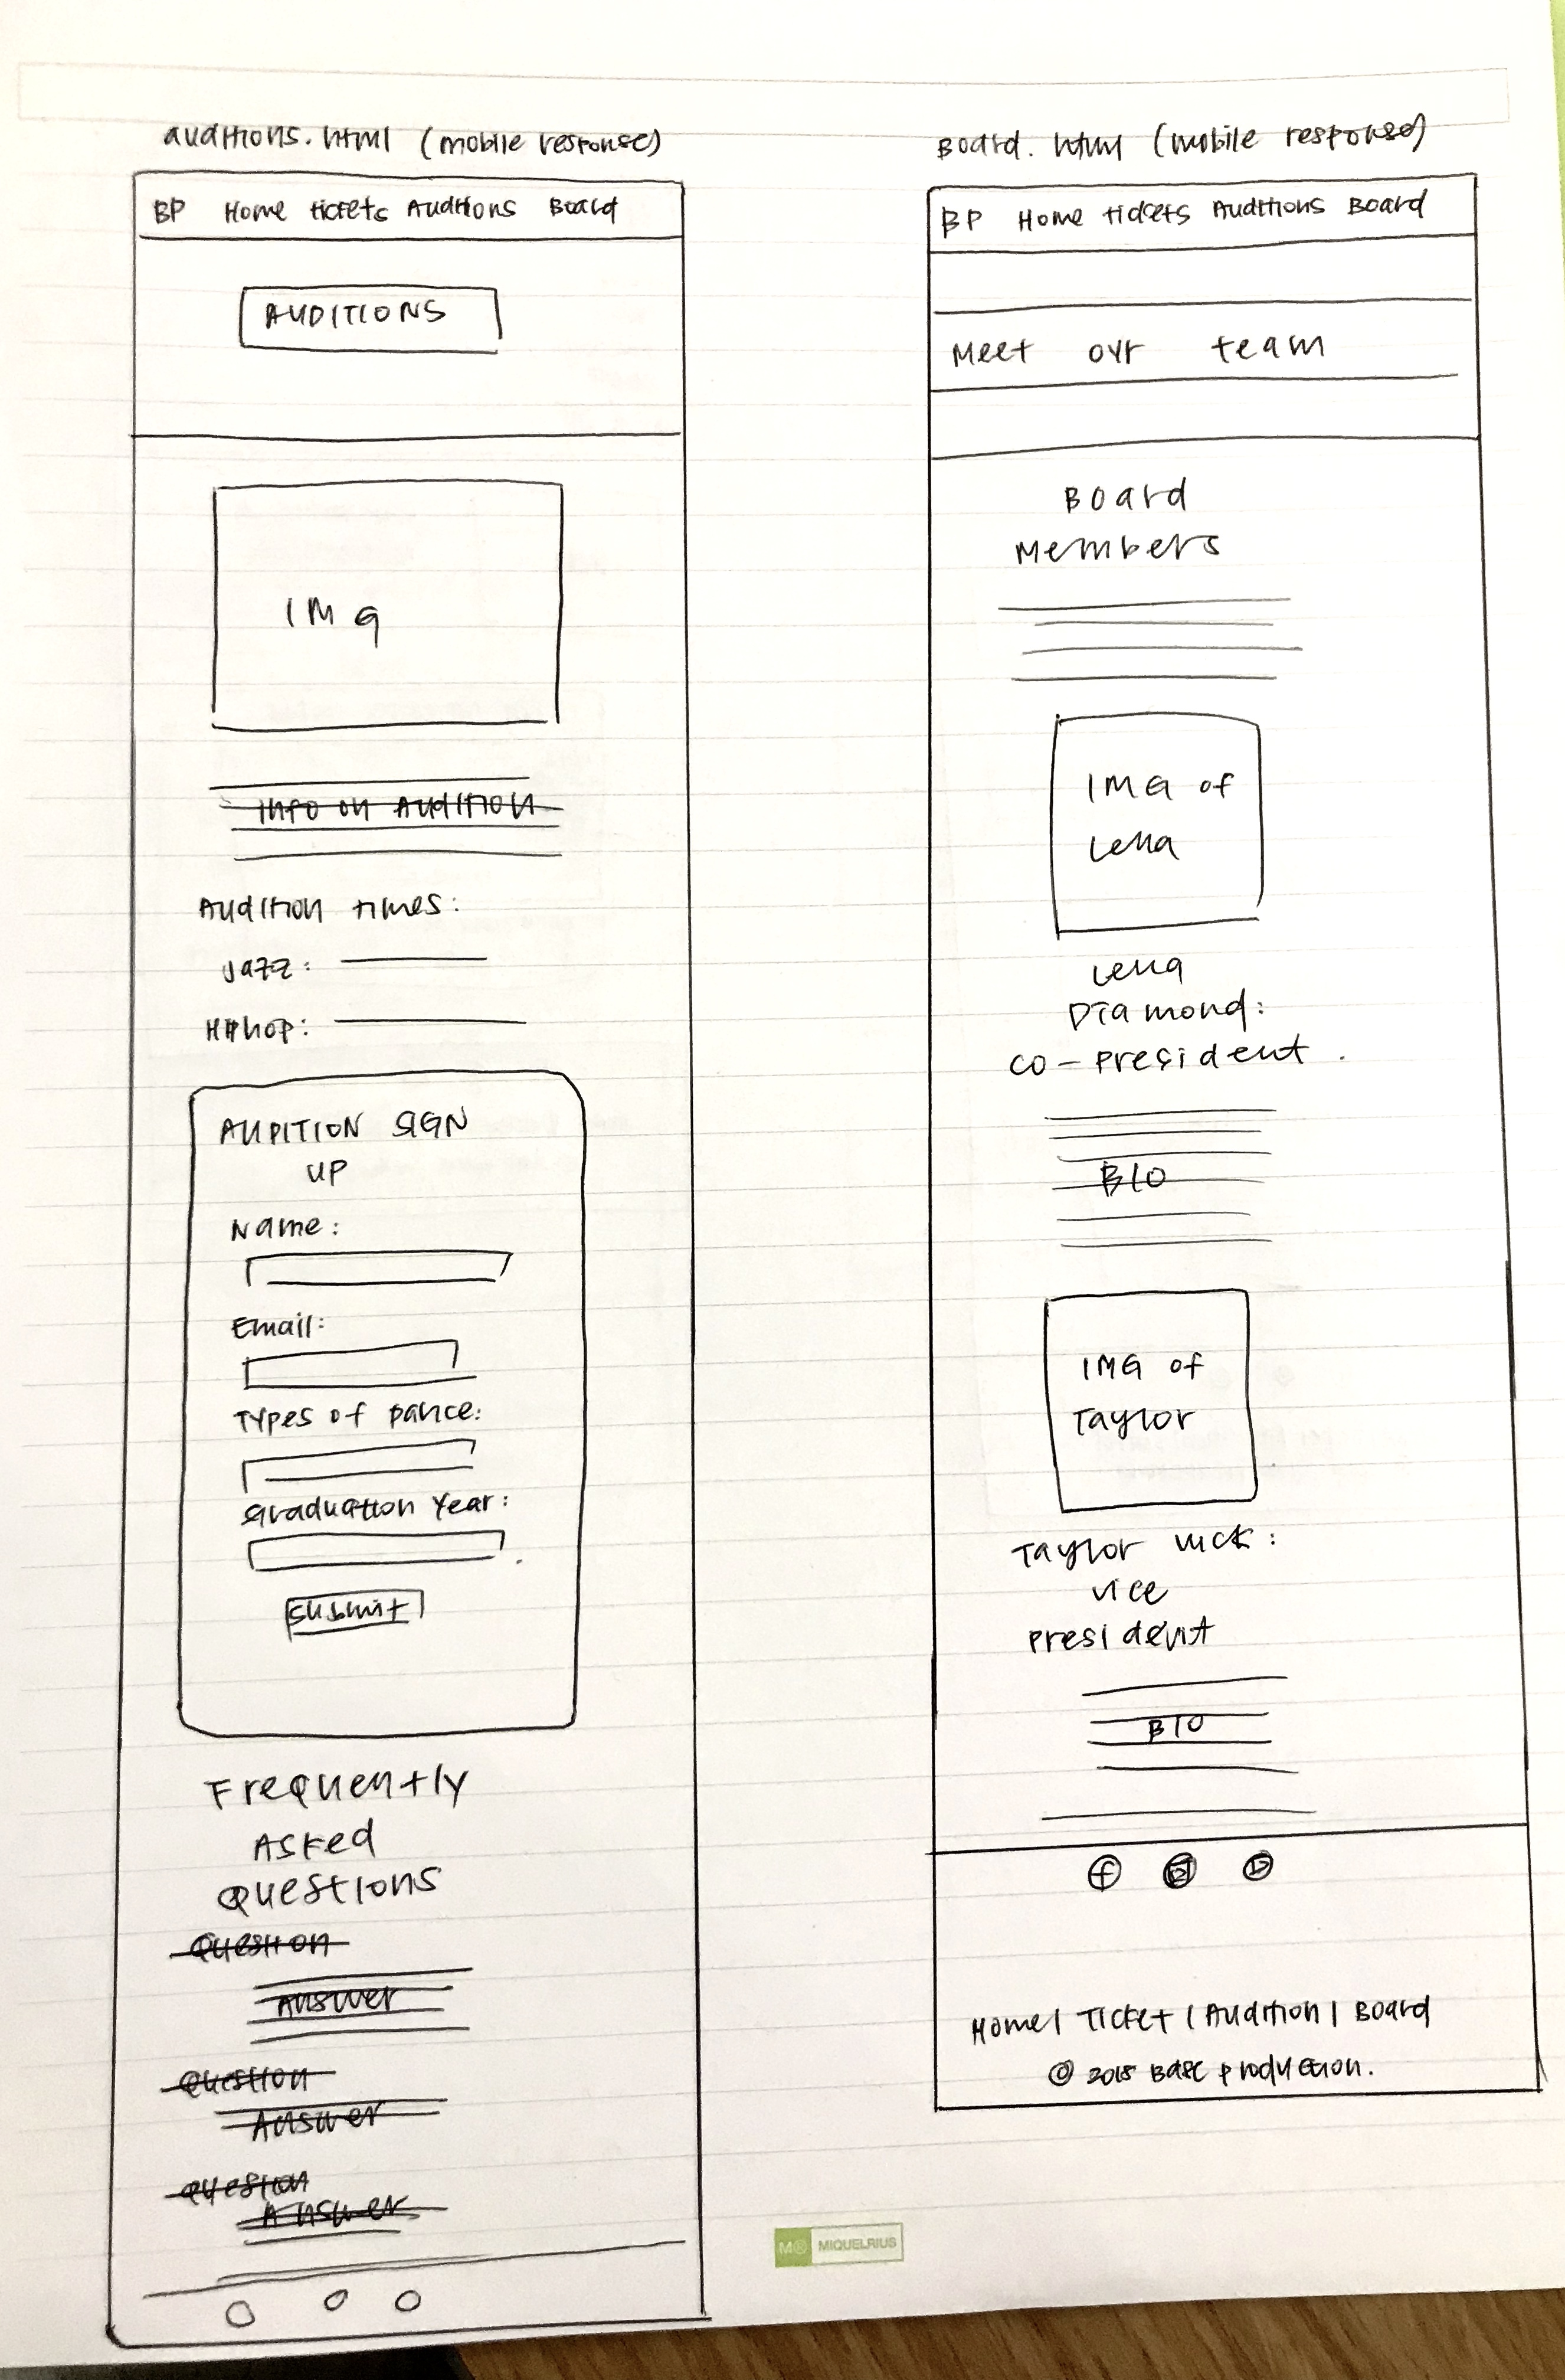 auditions.html (mobile response)
BP Home tickets Auditions Board
AUDITIONS
IMG
Info on Audition
Audition times:
Jazz:
Hiphop:
AUDITION SIGN
UP
Name:
Email:
Types of Dance:
Graduation Year:
Submit
Frequently
Asked
Questions
Question
Answer
Question
Answer
Question
Answer
Board.html (mobile response)
BP Home tickets Auditions Board
Meet our team
Board
Members
IMG of
Lena
Lena
Diamond:
co-president.
BIO
IMG of
Taylor
Taylor
vice
president
BIO
f
Home | Ticket | Audition | Board
© 2018 Base Production.
MR MIQUELRIUS